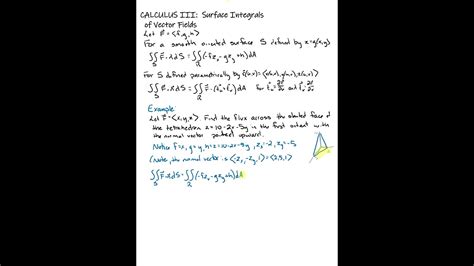 CALCULUS III: Surface Integrals
of Vector Fields
Let F = <f,g,h>
For a smooth oriented surface S defined by z=g(x,y)
∬_S F·n dS = ∬_R (-fz_x - gz_y + h) dA
For S defined parametrically by r(u,v) = <x(u,v), y(u,v), z(u,v)>
∬_S F·n dS = ∬_R F·(t_u × t_v) dA for t_u = ∂r/∂u and t_v = ∂r/∂v
Example:
Let F = <x,y,z>. Find the flux across the slanted face of
the tetrahedron z=10-2x-5y in the first octant with
the normal vector pointed upward.
Notice f=x, g=y, h=z=10-2x-5y, z_x=-2, z_y=-5
(note, the normal vector is <-z_x,-z_y,1> = <2,5,1>
∬_S F·n dS = ∬_R (-fz_x - gz_y + h) dA